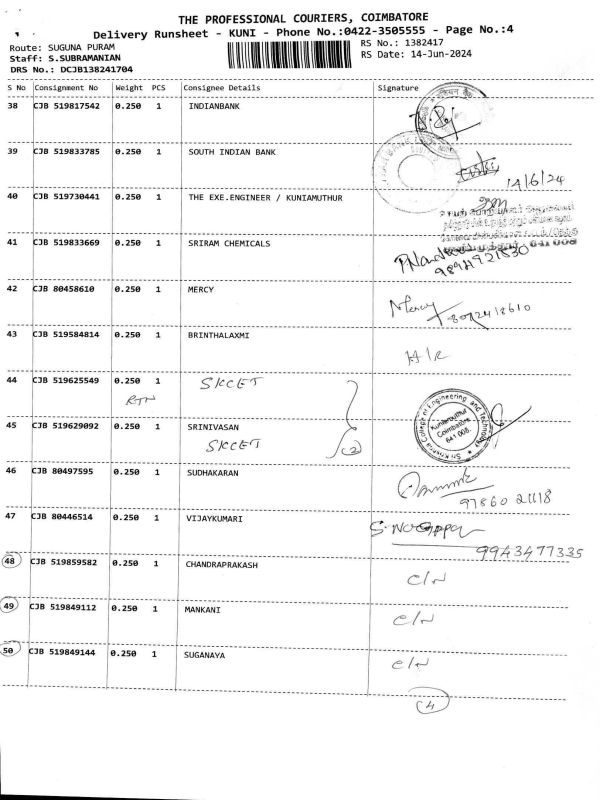 THE PROFESSIONAL COURIERS, COIMBATORE
Delivery Runsheet - KUNI - Phone No.:0422-3505555 - Page No.:4
Route: SUGUNA PURAM RS No.: 1382417
Staff: S.SUBRAMANIAN RS Date: 14-Jun-2024
DRS No.: DCJB138241704
S No Consignment No Weight PCS Consignee Details Signature
38 CJB 519817542 0.250 1 INDIANBANK
39 CJB 519833785 0.250 1 SOUTH INDIAN BANK
14/6/24
40 CJB 519730441 0.250 1 THE EXE.ENGINEER / KUNIAMUTHUR
41 CJB 519833669 0.250 1 SRIRAM CHEMICALS
641 008
9894921530
42 CJB 80458610 0.250 1 MERCY
Mercy
43 CJB 519584814 0.250 1 BRINTHALAXMI
H/R
44 CJB 519625549 0.250 1 SKCET
RTN
45 CJB 519629092 0.250 1 SRINIVASAN
SKCET (2)
Sri Krishna College of Engineering and Technology
Kuniamuthur
Coimbatore
641 008.
46 CJB 80497595 0.250 1 SUDHAKARAN
97860 21118
47 CJB 80446514 0.250 1 VIJAYKUMARI
9943477335
48 CJB 519859582 0.250 1 CHANDRAPRAKASH
C/N
49 CJB 519849112 0.250 1 MANKANI
C/N
50 CJB 519849144 0.250 1 SUGANAYA
C/N
(4